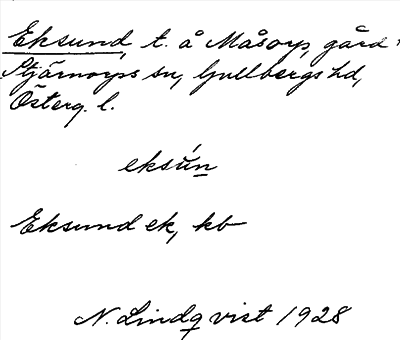 Eksund, t. å Måsorp, gård
Stjärnorps sn, Gullbergs hd,
Österg. l.
eksún
Eksund ek, kb
N. Lindqvist 1928